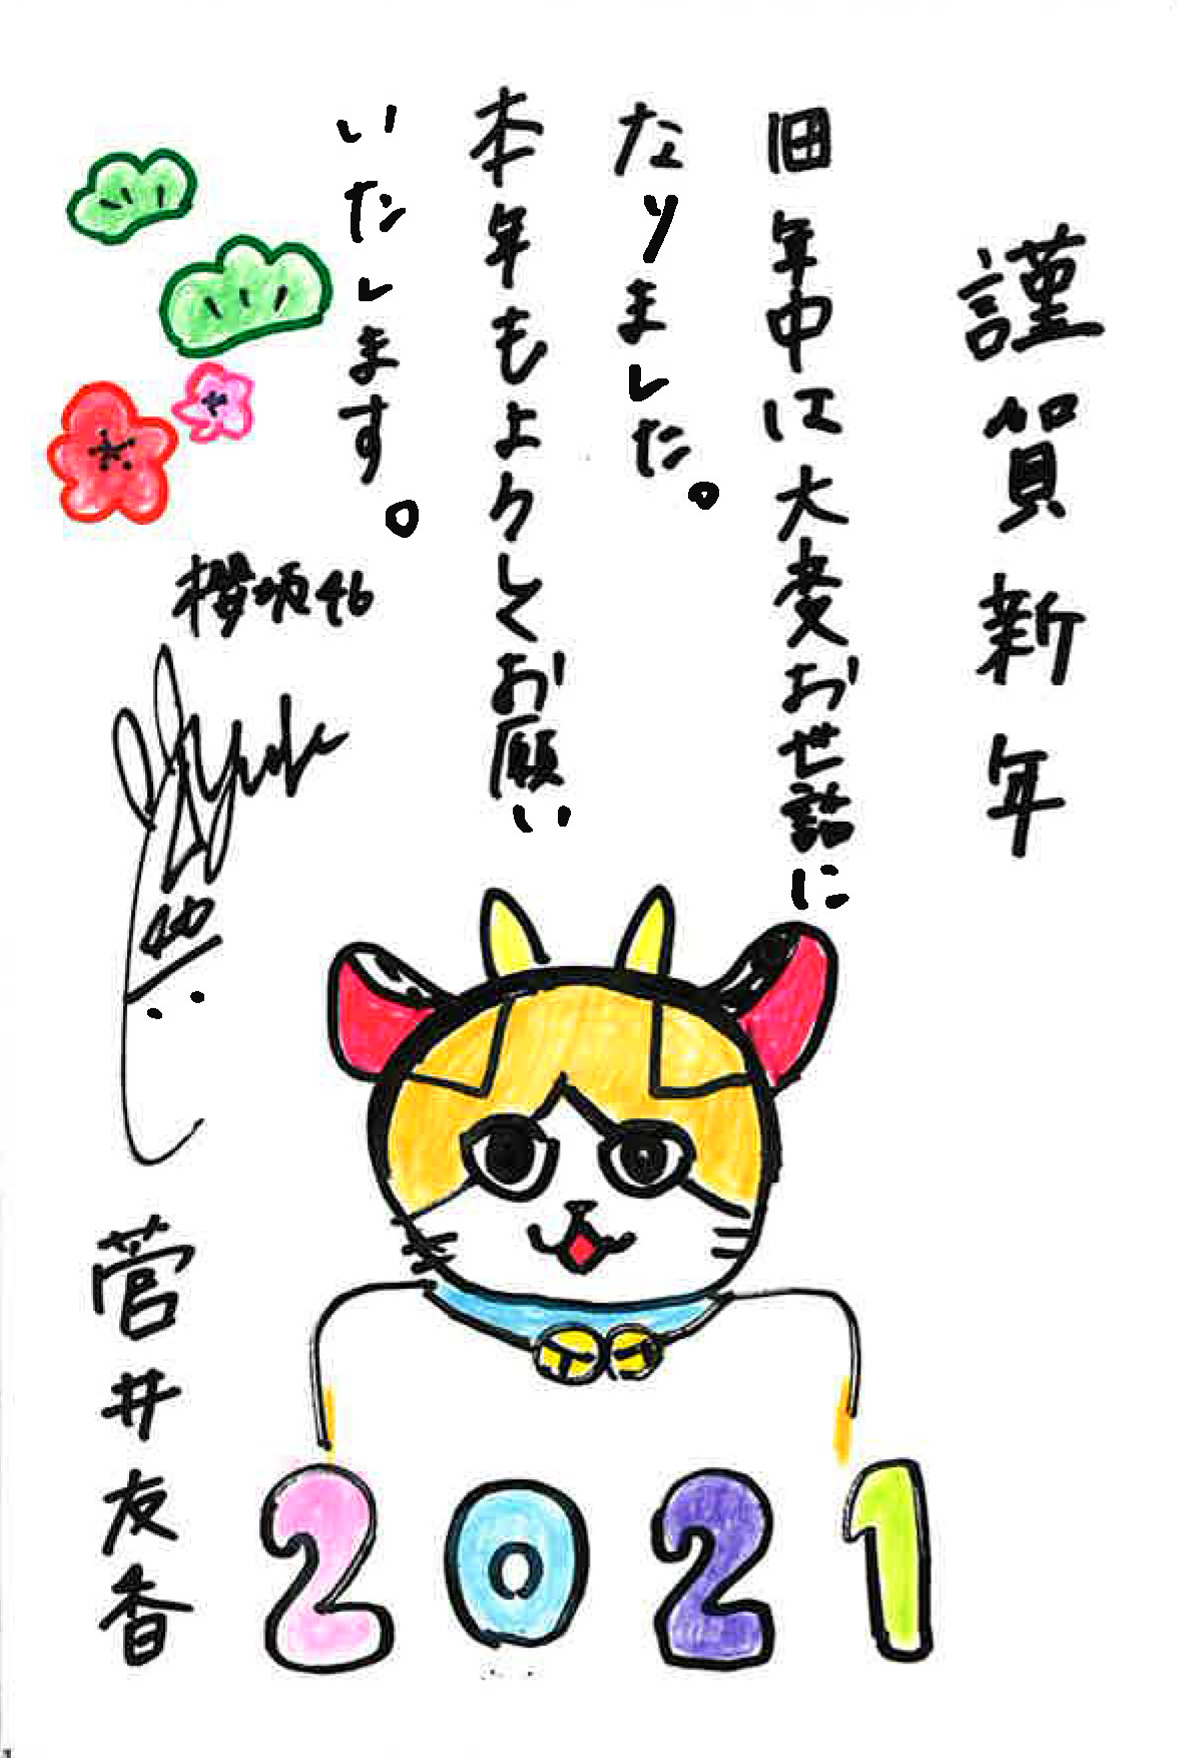 謹賀新年
旧年中は大変お世話に
なりました。
本年もよろしくお願い
いたします。
櫻坂46
菅井友香
2021